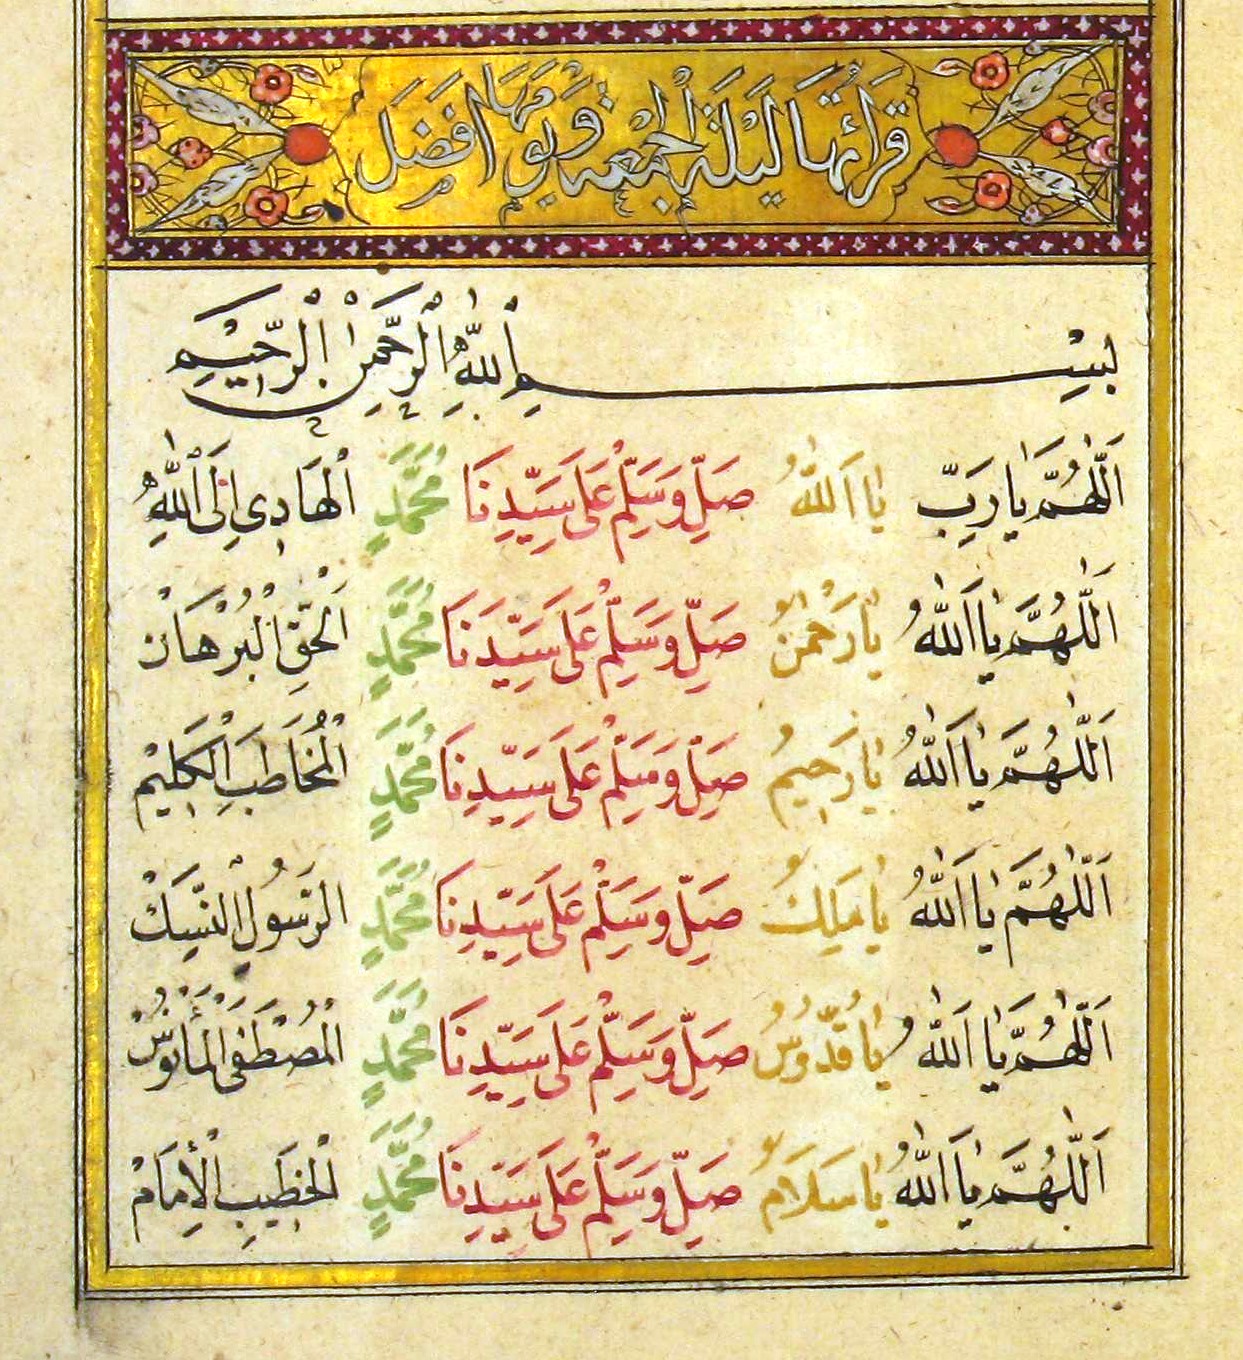 قرائتها ليلة الجمعة ويومها افضل
بِسْمِ اللّٰهِ الرَّحْمٰنِ الرَّحِيمِ
اَللّٰهُمَّ يَا رَبِّ يَا اَللّٰهُ صَلِّ وَسَلِّمْ عَلَى سَيِّدِنَا مُحَمَّدٍ الْهَادِي اِلَى اللّٰهِ
اَللّٰهُمَّ يَا اَللّٰهُ يَا رَحْمٰنُ صَلِّ وَسَلِّمْ عَلَى سَيِّدِنَا مُحَمَّدٍ الْحَقِّ الْبُرْهَانْ
اَللّٰهُمَّ يَا اَللّٰهُ يَا رَحِيمُ صَلِّ وَسَلِّمْ عَلَى سَيِّدِنَا مُحَمَّدٍ الْمُخَاطَبِ الْكَلِيمْ
اَللّٰهُمَّ يَا اَللّٰهُ يَا مَلِكُ صَلِّ وَسَلِّمْ عَلَى سَيِّدِنَا مُحَمَّدٍ الرَّسُولِ النَّسِكْ
اَللّٰهُمَّ يَا اَللّٰهُ يَا قُدُّوسُ صَلِّ وَسَلِّمْ عَلَى سَيِّدِنَا مُحَمَّدٍ الْمُصْطَفَى الْمَأْنُوسْ
اَللّٰهُمَّ يَا اَللّٰهُ يَا سَلَامُ صَلِّ وَسَلِّمْ عَلَى سَيِّدِنَا مُحَمَّدٍ الْخَطِيبِ الْأِمَامْ